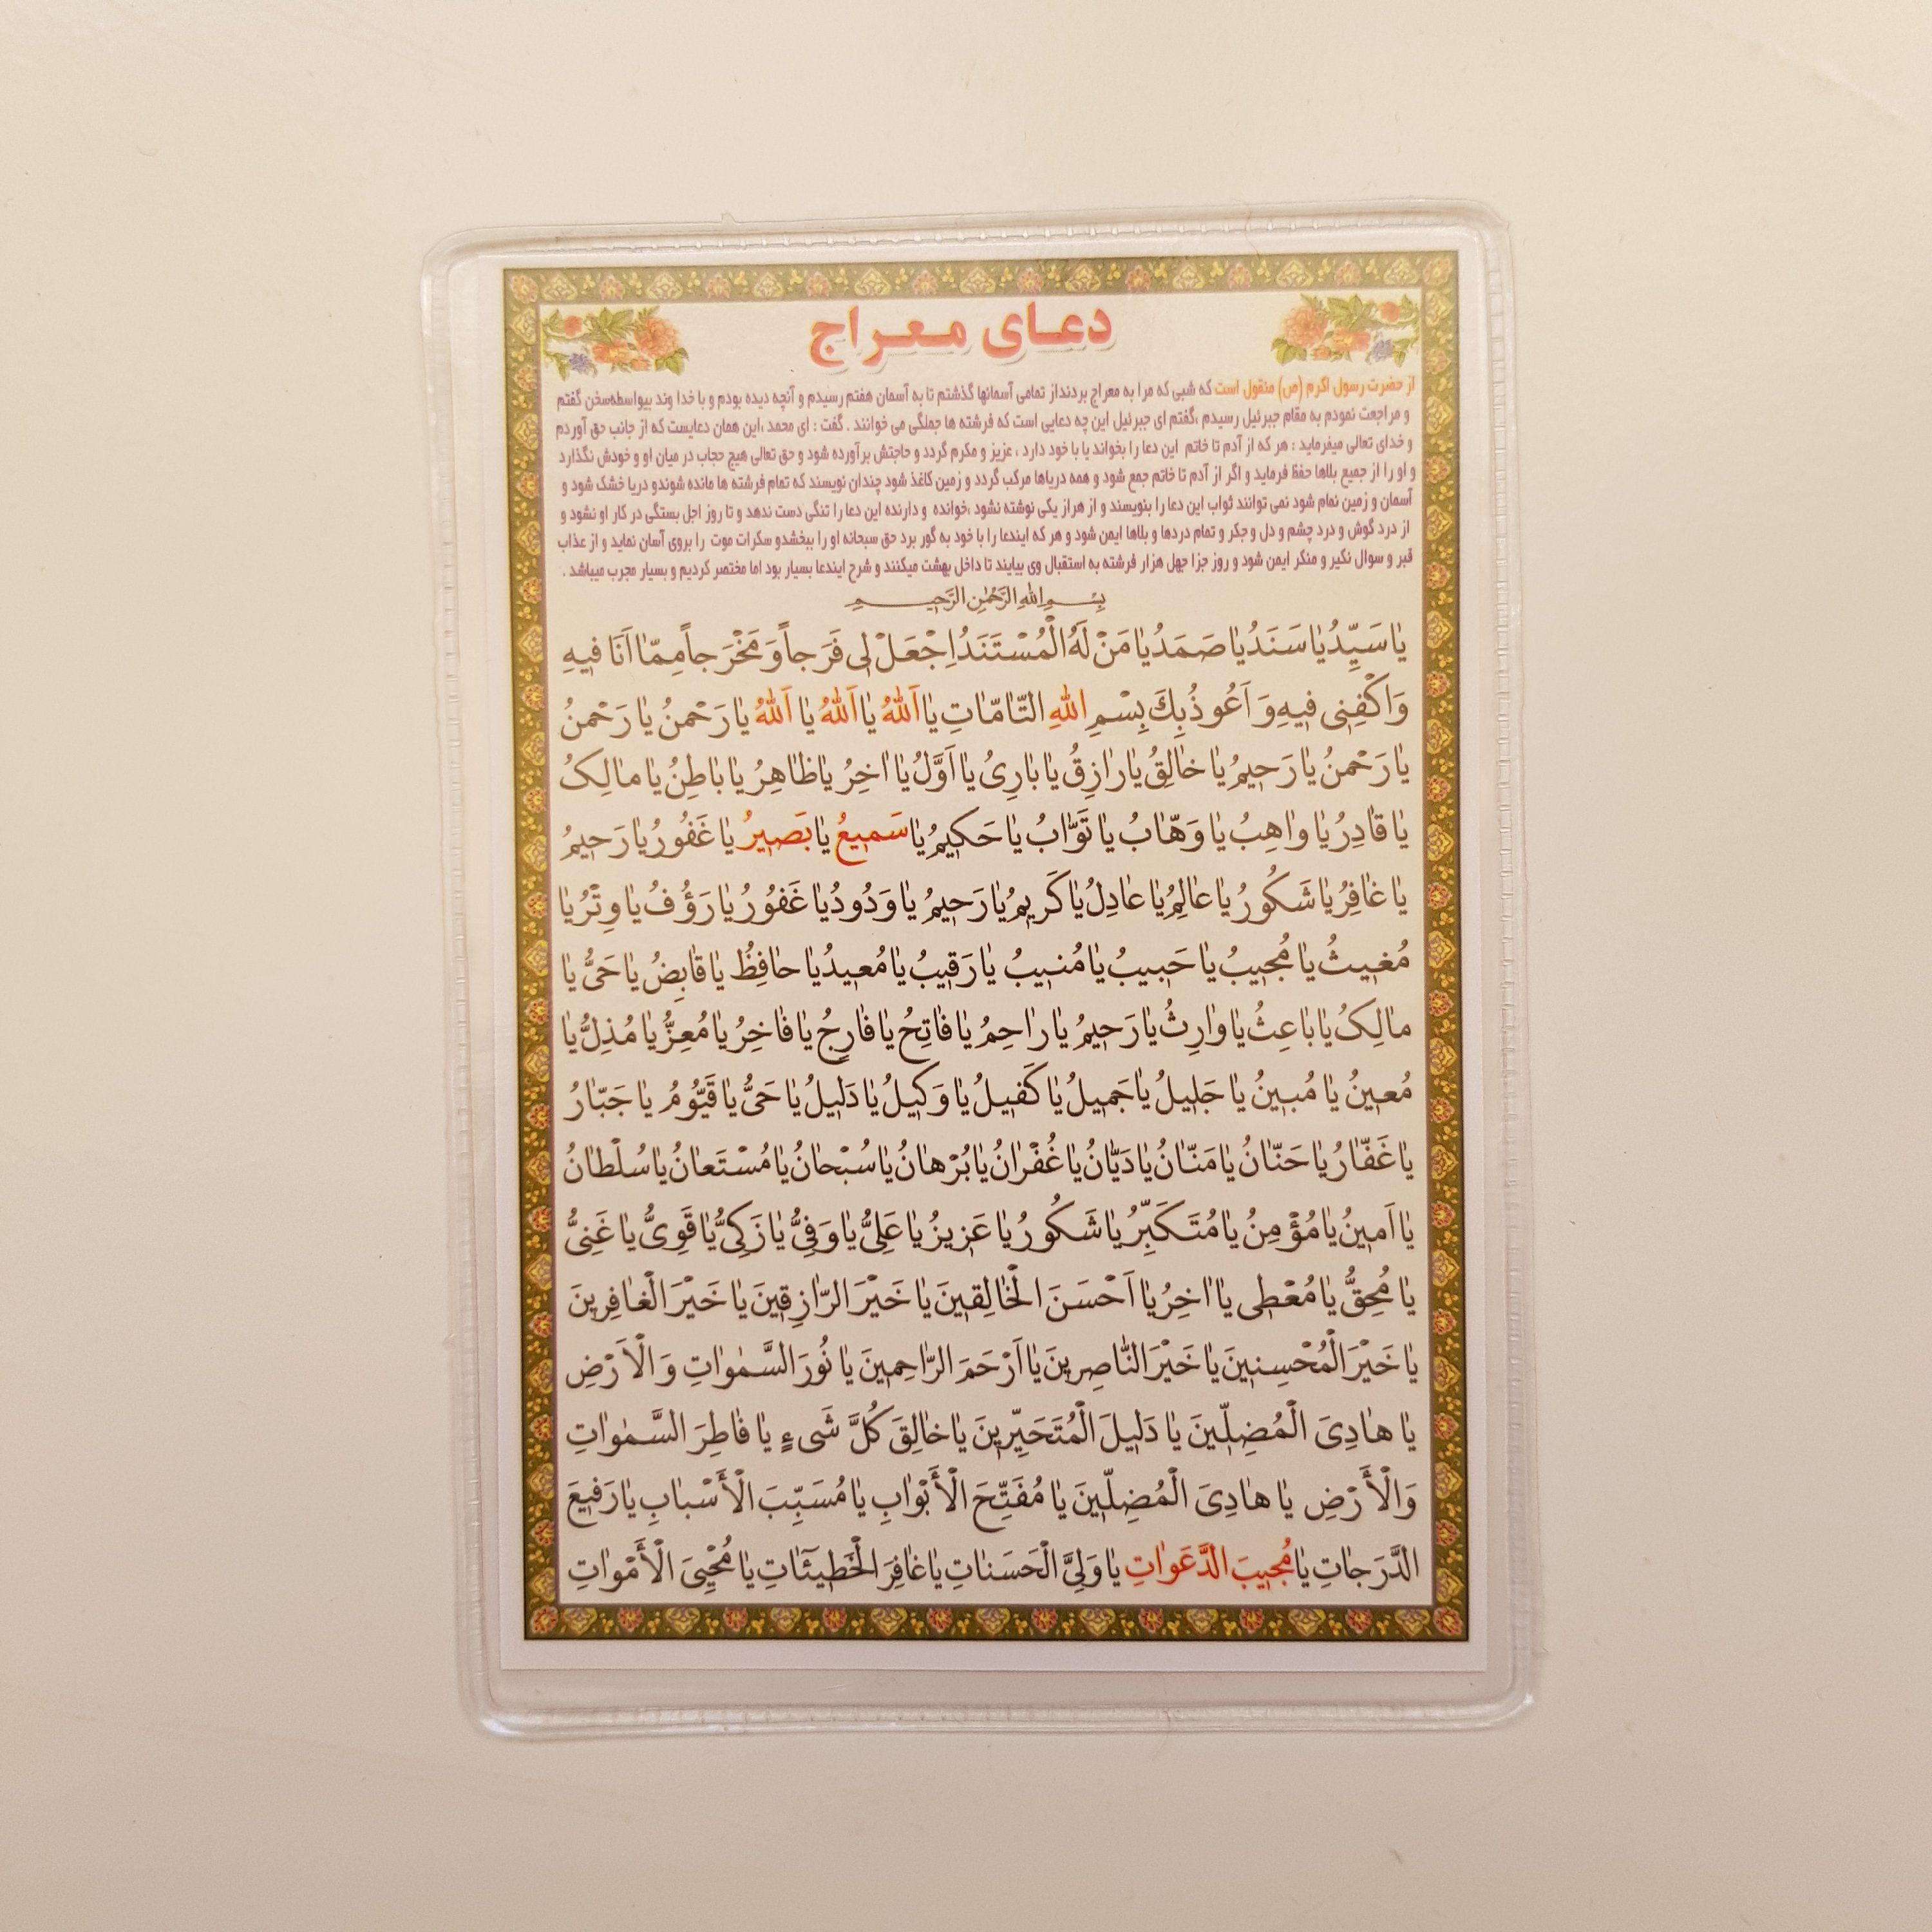 دعای معراج
از حضرت رسول اکرم (ص) منقول است که شبی که مرا به معراج بردنداز تمامی آسمانها گذشتم تا به آسمان هفتم رسیدم و آنچه دیده بودم و با خدا وند بیواسطه‌سخن گفتم
و مراجعت نمودم به مقام جبرئیل رسیدم ،گفتم ای جبرئیل این چه دعایی است که فرشته ها جملگی می خوانند . گفت : ای محمد ،این همان دعایست که از جانب حق آوردم
و خدای تعالی میفرماید : هر که از آدم تا خاتم این دعا را بخواند یا با خود دارد ، عزیز و مکرم گردد و حاجتش برآورده شود و حق تعالی هیچ حجاب در میان او و خودش نگذارد
و او را از جمیع بلاها حفظ فرماید و اگر از آدم تا خاتم جمع شود و همه دریاها مرکب گردد و زمین کاغذ شود چندان نویسند که تمام فرشته ها مانده شوندو دریا خشک شود و
آسمان و زمین تمام شود نمی توانند ثواب این دعا را بنویسند و از هراز یکی نوشته نشود ،خوانده و دارنده این دعا را تنگی دست ندهد و تا روز اجل بستگی در کار او نشود و
از درد گوش و درد چشم و دل و جگر و تمام دردها و بلاها ایمن شود و هر که ایندعا را با خود به گور برد حق سبحانه او را ببخشدو سکرات موت را بروی آسان نماید و از عذاب
قبر و سوال نکیر و منکر ایمن شود و روز جزا چهل هزار فرشته به استقبال وی بیایند تا داخل بهشت میکنند و شرح ایندعا بسیار بود اما مختصر کردیم و بسیار مجرب میباشد .
بِسْمِ اللهِ الرَّحْمٰنِ الرَّحِیمِ
یٰا سَیِّدُ یٰا سَنَدُ یٰا صَمَدُ یٰا مَنْ لَهُ الْمُسْتَنَدُ اِجْعَلْ لٖی فَرَجاً وَ مَخْرَجاً مِمّٰا اَنَا فٖیهِ
وَاکْفِنٖی فٖیهِ وَ اَعُوذُ بِكَ بِسْمِ اللهِ التّٰامّٰاتِ یٰا اَللهُ یٰا اَللهُ یٰا اَللهُ یٰا رَحْمنُ یٰا رَحْمنُ
یٰا رَحْمنُ یٰا رَحٖیمُ یٰا خٰالِقُ یٰا رٰازِقُ یٰا بٰارِیُ یٰا اَوَّلُ یٰا اٰخِرُ یٰا ظٰاهِرُ یٰا بٰاطِنُ یٰا مٰالِکُ
یٰا قٰادِرُ یٰا وٰاهِبُ یٰا وَهّٰابُ یٰا تَوّٰابُ یٰا حَکٖیمُ یٰا سَمٖیعُ یٰا بَصٖیرُ یٰا غَفُورُ یٰا رَحٖیمُ
یٰا غٰافِرُ یٰا شَکُورُ یٰا عٰالِمُ یٰا عٰادِلُ یٰا کَرٖیمُ یٰا رَحٖیمُ یٰا وَدُودُ یٰا غَفُورُ یٰا رَؤُفُ یٰا وِتْرُ یٰا
مُغٖیثُ یٰا مُجٖیبُ یٰا حَبٖیبُ یٰا مُنٖیبُ یٰا رَقٖیبُ یٰا مُعٖیدُ یٰا حٰافِظُ یٰا قٰابِضُ یٰا حَیُّ یٰا
مٰالِکُ یٰا بٰاعِثُ یٰا وٰارِثُ یٰا رَحٖیمُ یٰا رٰاحِمُ یٰا فٰاتِحُ یٰا فٰارِجُ یٰا فٰاخِرُ یٰا مُعِزُّ یٰا مُذِلُّ یٰا
مُعٖینُ یٰا مُبٖینُ یٰا جَلٖیلُ یٰا جَمٖیلُ یٰا کَفٖیلُ یٰا وَکٖیلُ یٰا دَلٖیلُ یٰا حَیُّ یٰا قَیُّومُ یٰا جَبّٰارُ
یٰا غَفّٰارُ یٰا حَنّٰانُ یٰا مَنّٰانُ یٰا دَیّٰانُ یٰا غُفْرٰانُ یٰا بُرْهٰانُ یٰا سُبْحٰانُ یٰا مُسْتَعٰانُ یٰا سُلْطٰانُ
یٰا اَمٖینُ یٰا مُؤْمِنُ یٰا مُتَکَبِّرُ یٰا شَکُورُ یٰا عَزٖیزُ یٰا عَلِیُّ یٰا وَفِیُّ یٰا زَکِیُّ یٰا قَوِیُّ یٰا غَنِیُّ
یٰا مُحِقُّ یٰا مُعْطٖی یٰا اٰخِرُ یٰا اَحْسَنَ الْخٰالِقٖینَ یٰا خَیْرَ الرّٰازِقٖینَ یٰا خَیْرَ الْغٰافِرٖینَ
یٰا خَیْرَ الْمُحْسِنٖینَ یٰا خَیْرَ النّٰاصِرٖینَ یٰا اَرْحَمَ الرّٰاحِمٖینَ یٰا نُورَ السَّمٰوٰاتِ وَ الْاَرْضِ
یٰا هٰادِیَ الْمُضِلّٖینَ یٰا دَلٖیلَ الْمُتَحَیِّرٖینَ یٰا خٰالِقَ کُلِّ شَیءٍ یٰا فٰاطِرَ السَّمٰوٰاتِ
وَالْأَرْضِ یٰا هٰادِیَ الْمُضِلّٖینَ یٰا مُفَتِّحَ الْأَبْوٰابِ یٰا مُسَبِّبَ الْأَسْبٰابِ یٰا رَفٖیعَ
الدَّرَجٰاتِ یٰا مُجٖیبَ الدَّعَوٰاتِ یٰا وَلِیَّ الْحَسَنٰاتِ یٰا غٰافِرَ الْخَطٖیئٰاتِ یٰا مُحْیِیَ الْأَمْوٰاتِ